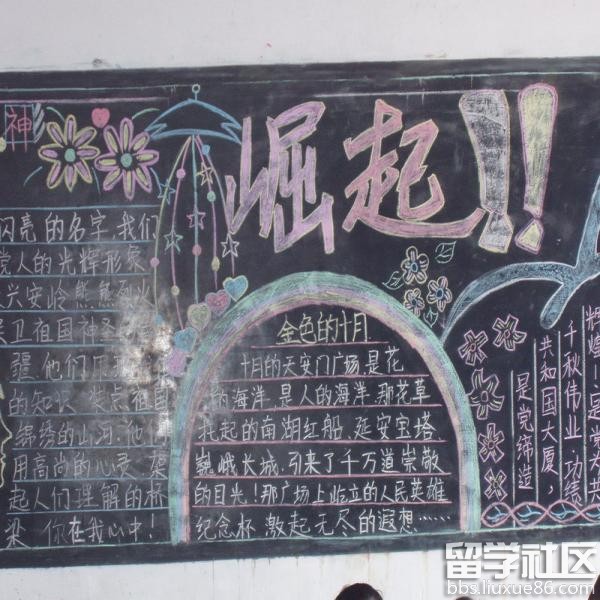 神
崛起!!
闪亮的名字，我们
党人的光辉形象
大兴安岭熊熊烈火
卫祖国神圣
疆，他们用
的知识 装点祖国
锦绣的山河，他们
用高尚的心灵，架
起人们理解的桥
梁，你在我心中！
金色的十月
十月的天安门广场，是花
的海洋，是人的海洋，那花草
托起的南湖红船，延安宝塔
巍峨长城，引来了千万道崇敬
的目光！那广场上屹立的人民英雄
纪念杯，激起无尽的遐想……
辉煌
千秋伟业，功绩
共和国大厦，
是党缔造
留学社区
bbs.liuxue86.com